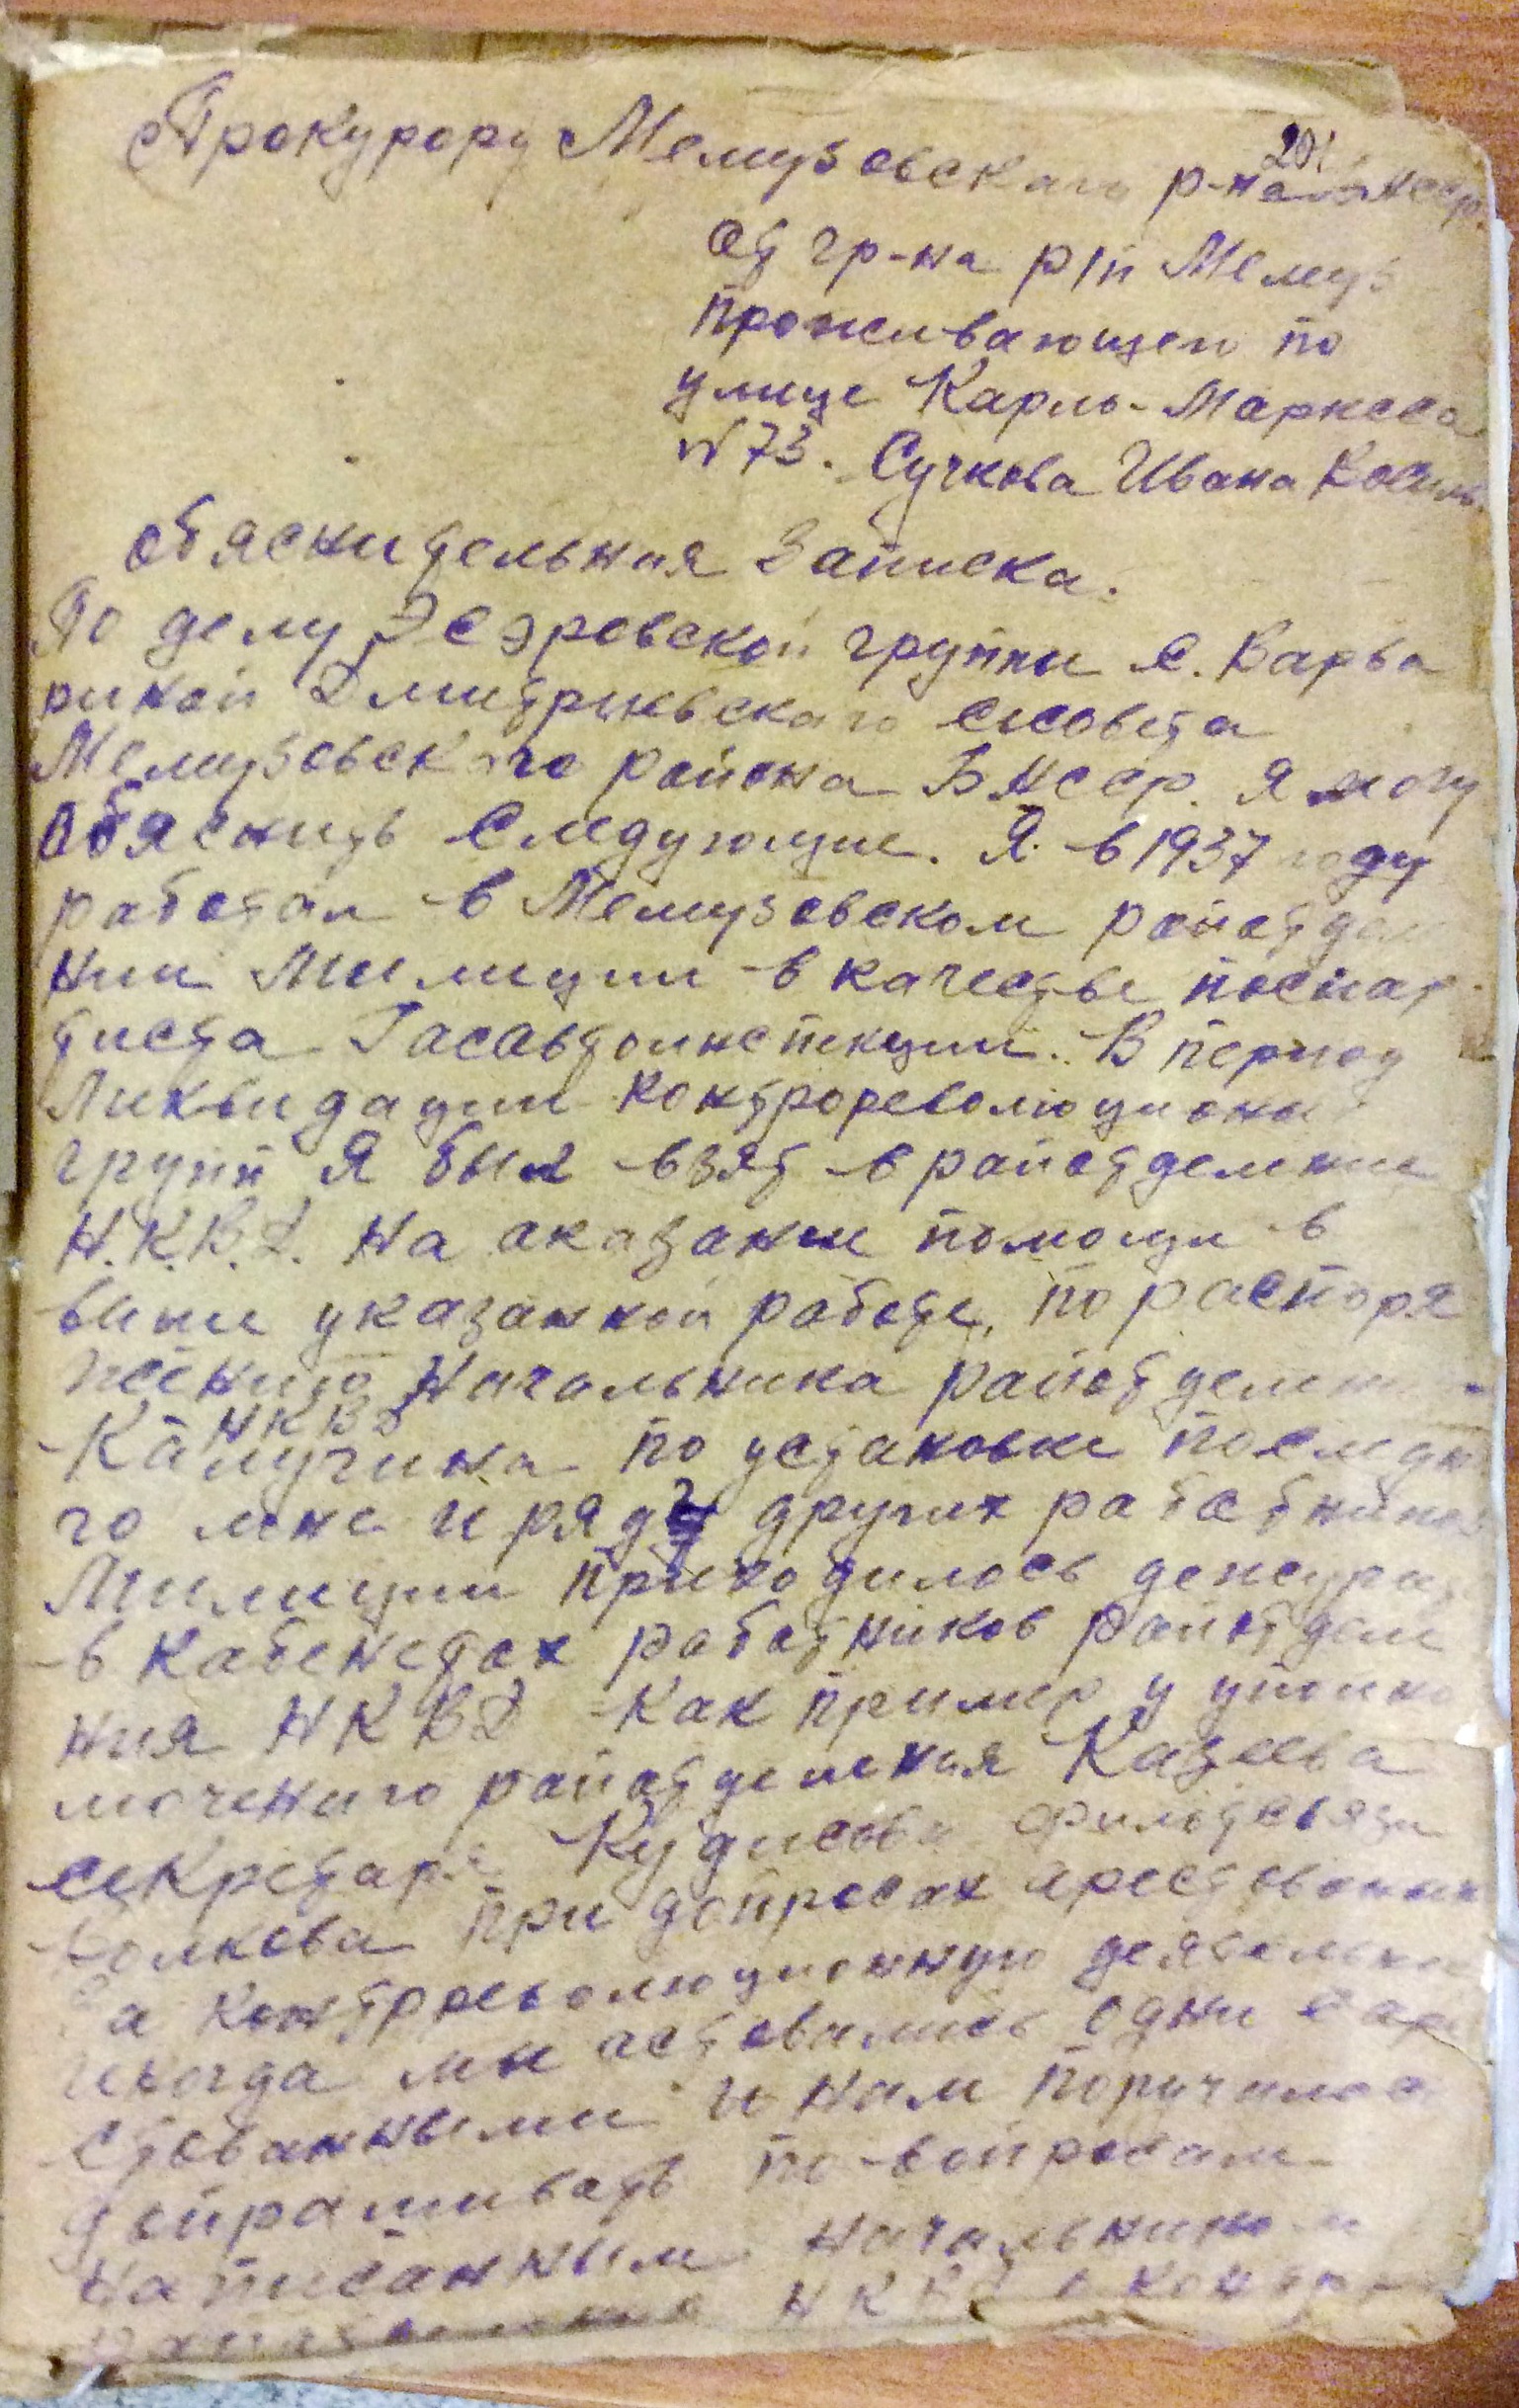 Прокурору Мелеузовского р-на БАССР.
201
От гр-на р/п Мелеуз
проживающего по
улице Карль-Маркса
№ 73. Сучкова Ивана Василь.
Обяснительная Записка.
По делу Эсэровской группы с. Варва
риной Дмитриевского с/совета
Мелеузовского района БАССР. Я могу
Обяснить Следующие. Я в 1937 году
работал в Мелеузовском райотделе
нии Милиции в качестве
Госавтоинспекции. В период
Ликвидации контрореволюционн
групп Я был взят в райотделение
Н.К.В.Д. на аказание помощи в
выше указанной работе, по распоря
жению Начальника райотделени
НКВД
Калугина по установке последн
го мне и ряду других работников
Милиции приходилось дежурит
в кабенетах работников райотделе
ния НКВД как пример у уполно
моченого райотделения Казеева
секретаря Кудисова фильдсвязи
Волкова при допросах арестованных
за контрреволюционную деятельно
иногда мы оставались одни с аре
стованными и нам поручилось
допрашивать по вопросам
написанным начальником
НКВД о контр